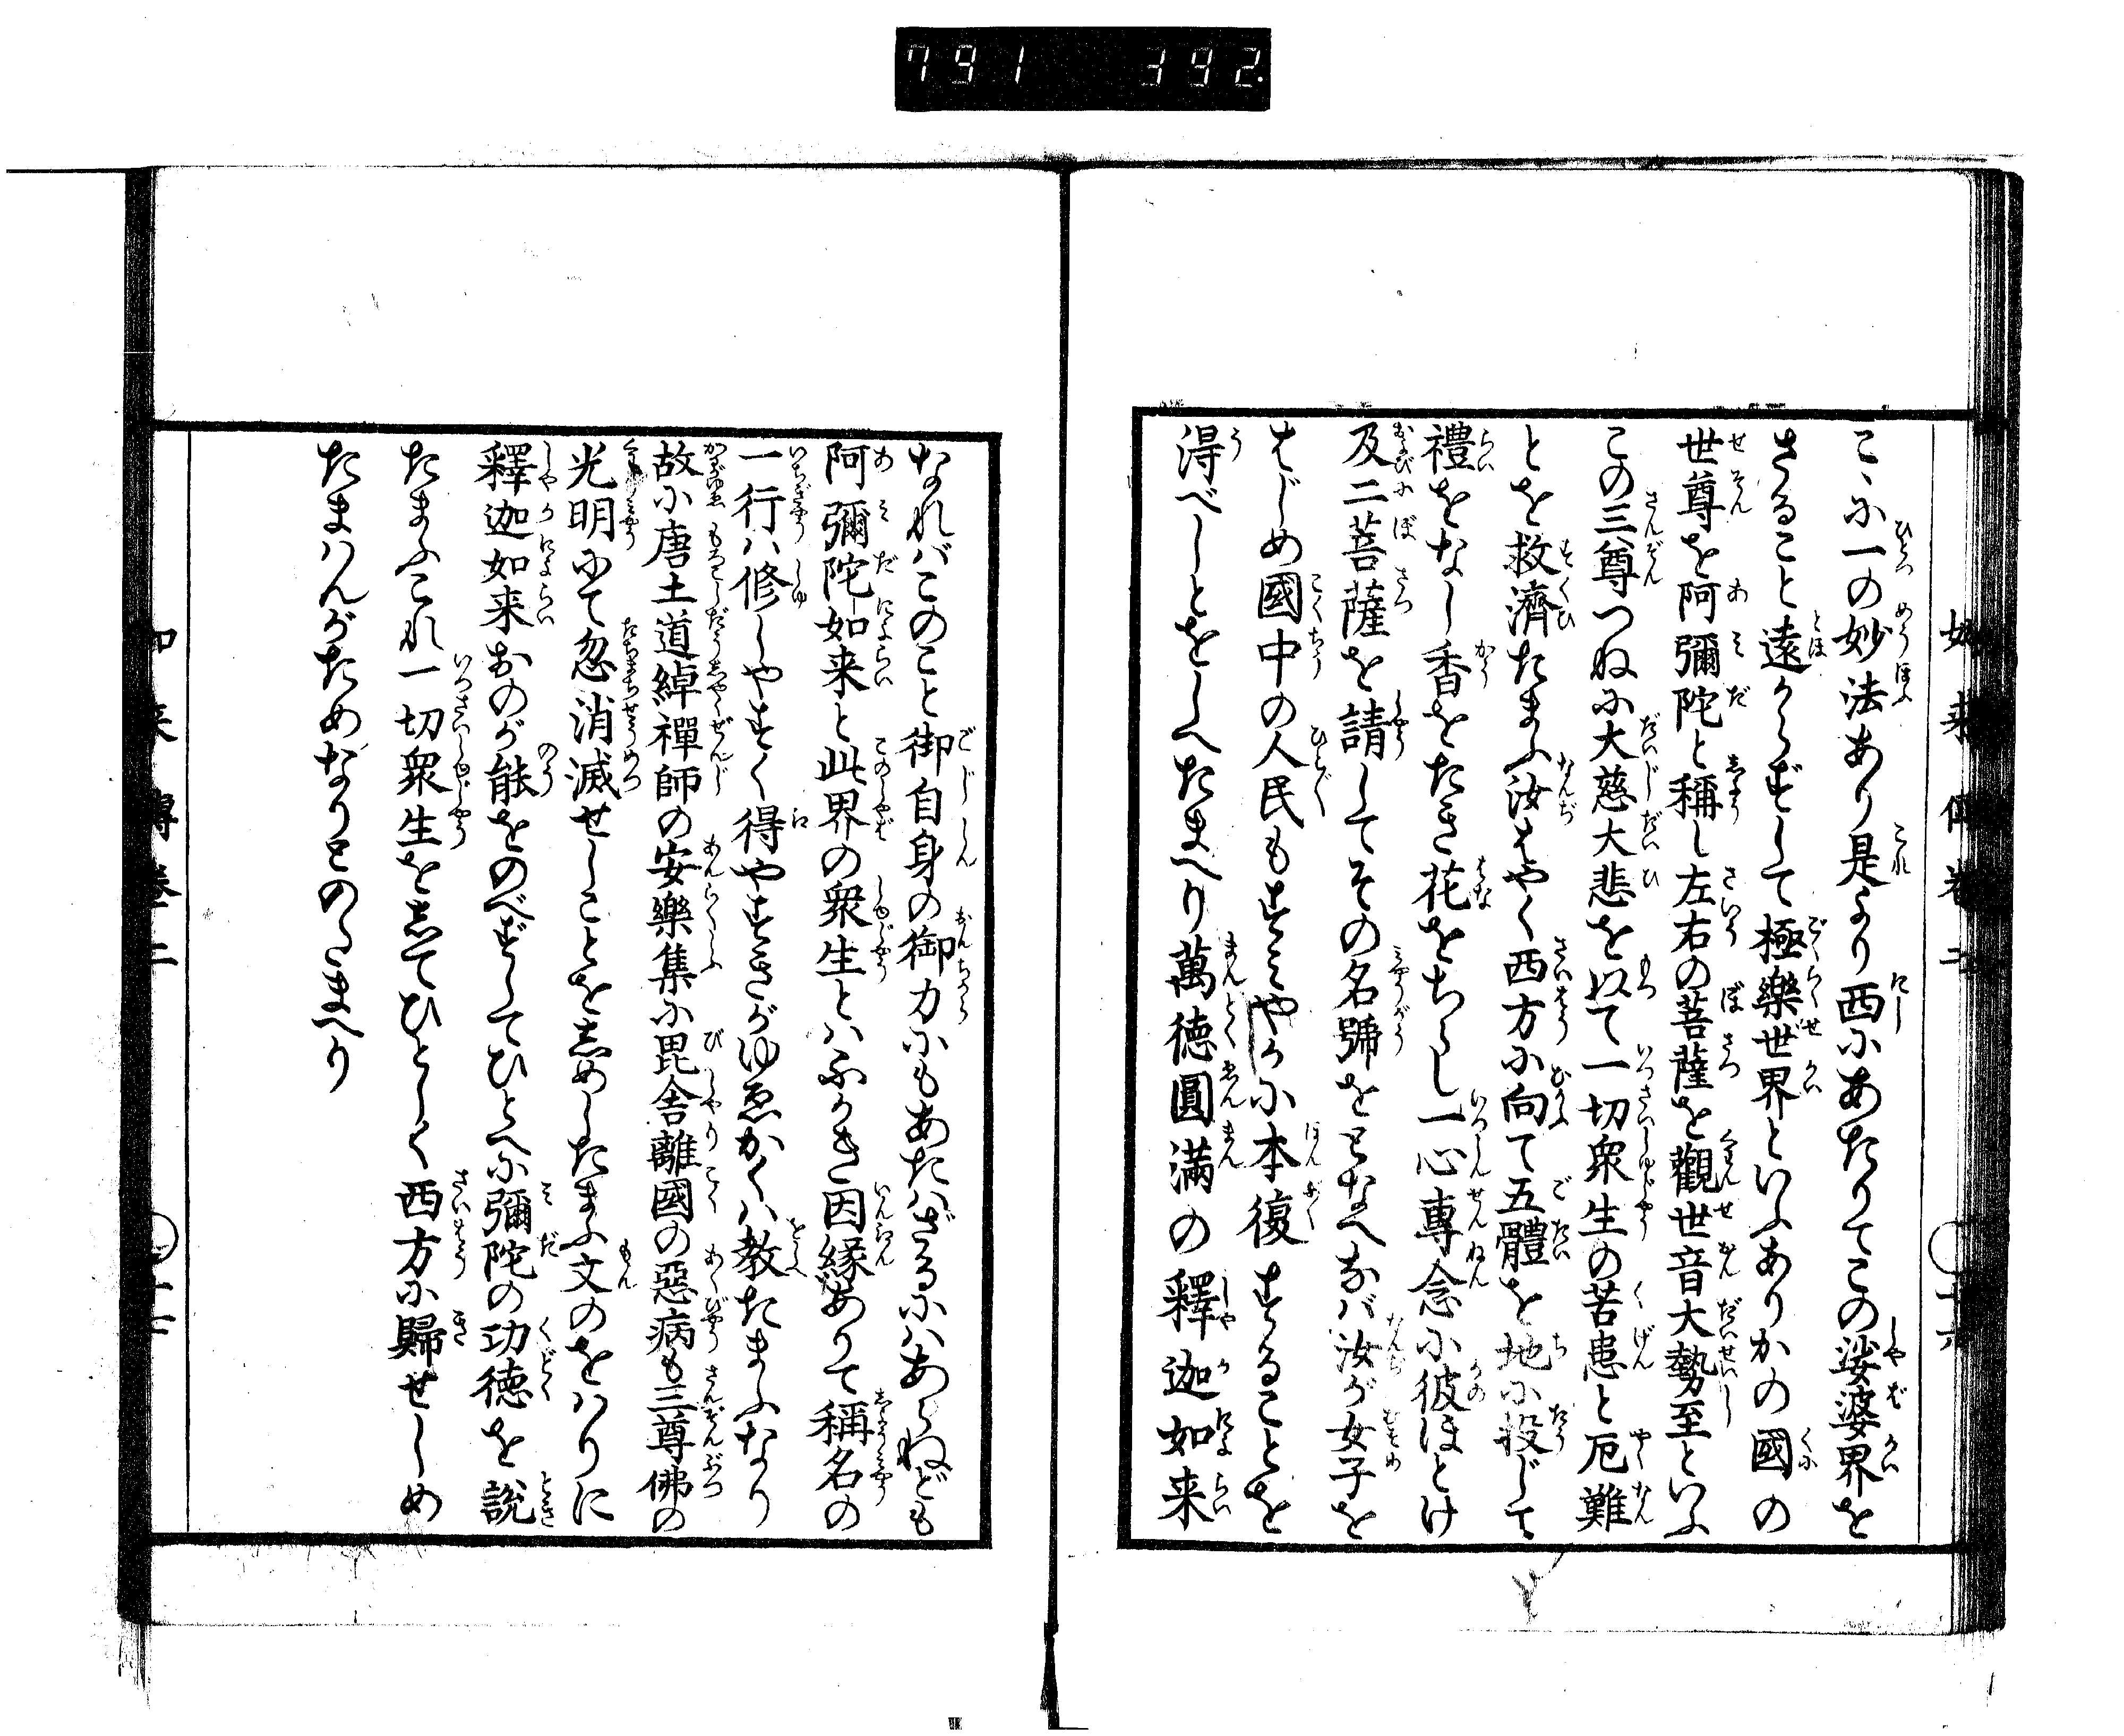 791 392
こゝに一の妙法あり是より西にあたりてこの娑婆界を
さること遠からずして極樂世界といふありかの國の
世尊を阿彌陀と稱し左右の菩薩を觀世音大勢至といふ
この三尊つねに大慈大悲を以て一切衆生の苦患と厄難
とを救濟たまふ汝はやく西方に向て五體を地に投じて
禮をなし香をたき花をちらし一心專念に彼ほとけ
及二菩薩を請してその名號をとなへなバ汝が女子を
はじめ國中の人民もすみやかに本復することを
得べしとをしへたまへり萬徳圓満の釋迦如来
なれバこのこと御自身の御力にもあたハざるにハあらねども
阿彌陀如来と此界の衆生とハふかき因縁ありて稱名の
一行ハ修しやすく得やすきがゆゑかくハ教たまふなり
故に唐土道綽禪師の安樂集に毘舎離國の惡病も三尊佛の
光明にて忽消滅せしことを志めしたまふ文のをハりに
釋迦如来おのが能をのべずしてひとへに彌陀の功徳を説
たまふこれ一切衆生を志てひとしく西方に歸せしめ
たまハんがためなりとのたまへり